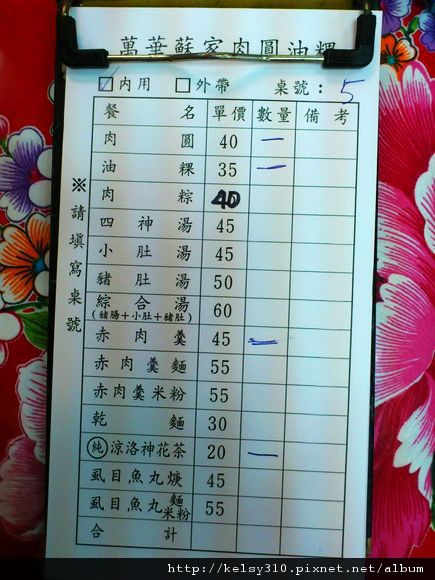 萬華蘇家肉圓油粿
內用 外帶 桌號：5
餐名 單價 數量 備考
肉圓 40 一
油粿 35 一
肉粽 40
四神湯 45
小肚湯 45
豬肚湯 50
綜合湯 60
(豬腸+小肚+豬肚)
赤肉羹 45 二
赤肉羹麵 55
赤肉羹米粉 55
乾麵 30
純 涼洛神花茶 20 一
虱目魚丸焿 45
虱目魚丸麵 55
米粉
合計
※請填寫桌號
http://kelsy310.pixnet.net/album